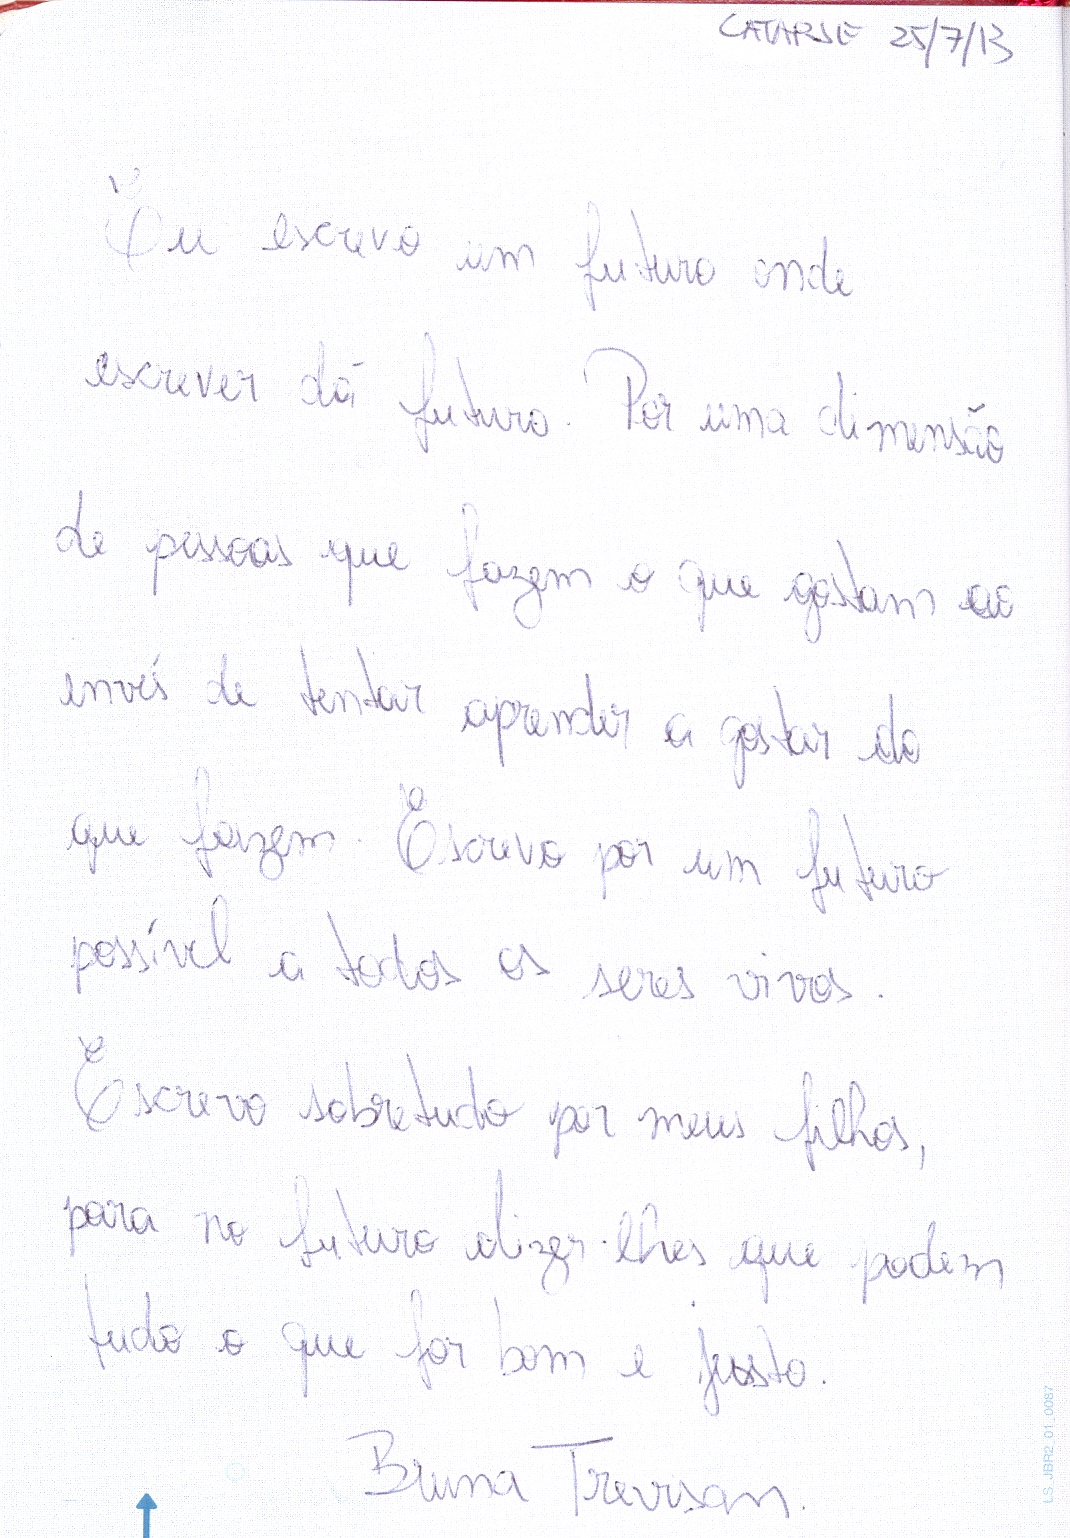 CATARSE 25/7/13
Eu escrevo um futuro onde
escrever dá futuro. Por uma dimensão
de pessoas que fazem o que gostam ao
invés de tentar aprender a gostar do
que fazem. Escrevo por um futuro
possível a todos os seres vivos.
Escrevo sobretudo por meus filhos,
para no futuro dizer-lhes que podem
tudo o que for bom e justo.
Bruna Trevisan.
LS_JBR2_01_0087